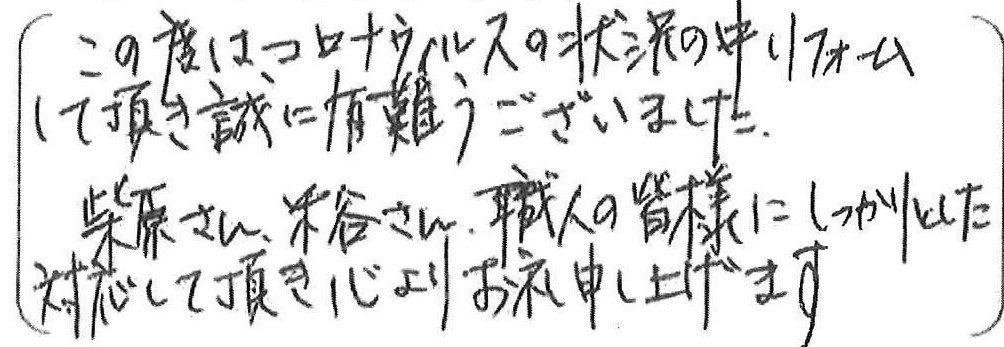 この度はコロナウィルスの状況の中リフォーム
して頂き誠に有難うございました.
柴原さん、米谷さん、職人の皆様にしっかりとした
対応して頂き心よりお礼申し上げます